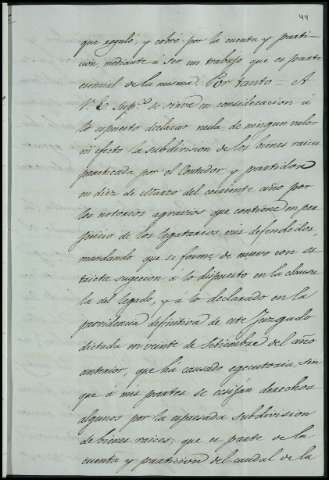 44
que reguló, y cobró por la cuenta y parti-
cion, mediante a ser un trabajo que es parte
esencial de la misma. Por tanto = A
V.E. Supco. se sirva en consideracion à
lo expuesto declarar nula de ningun valor
ni efecto la subdivision de los bienes raices
practicada por el Contador, y partidor
en diez de Marzo del corriente año por
los notorios agravios que contiene en per-
juicio de los legatarios, mis defendidos,
mandando que se forme de nuevo con es-
tricta sugecion a lo dispuesto en la clausu-
la del legado, y a lo declarado en la
providencia definitiva de este Juzgado
dictada en veinte de Setiembre del año
anterior, que ha causado egecutoria, sin
que à mis partes se exijan derechos
algunos por la espresada subdivision
de bienes raices, que es parte de la
cuenta y particion del caudal de la